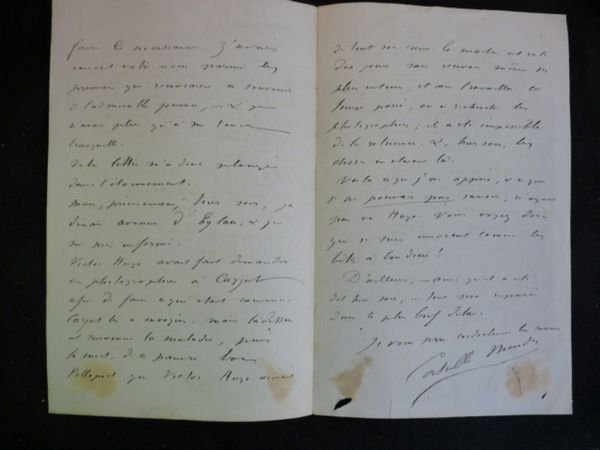 faire le nécessaire. J'avais
inscrit votre nom parmi les
premiers qui recevraient ce souvenir
de l'admirable poème, — & je
n'avais plus qu'à me tenir
tranquille.
Votre lettre m'a donc plongé
dans l'étonnement.
Mais, précisément, hier soir, je
dînais avenue d'Eylau, & je
me suis informé.
Victor Hugo avait fait demander
ses photographies à Carjat
afin de faire ce qui était convenu
Carjat les a envoyées. Mais là-dessus
est survenue la maladie, puis
la mort, de ce pauvre bon
Pelleport que Victor Hugo aimait
de tout son cœur. Le maître est resté
des jours sans recevoir même ses
plus intimes, et sans travailler. Ce
temps passé, on a recherché les
photographies; il a été impossible
de les retrouver. &, hier soir, les
choses en étaient là.
Voilà ce que j'ai appris, & ce que
je ne pouvais pas savoir, n'ayant
pas vu Hugo. Vous voyez donc
que je suis innocent comme les
D'ailleurs, — ainsi qu'il a été
dit hier soir, — tout sera réparé
dans le plus bref délai.
Je vous serre cordialement la main,
Catulle Mendès